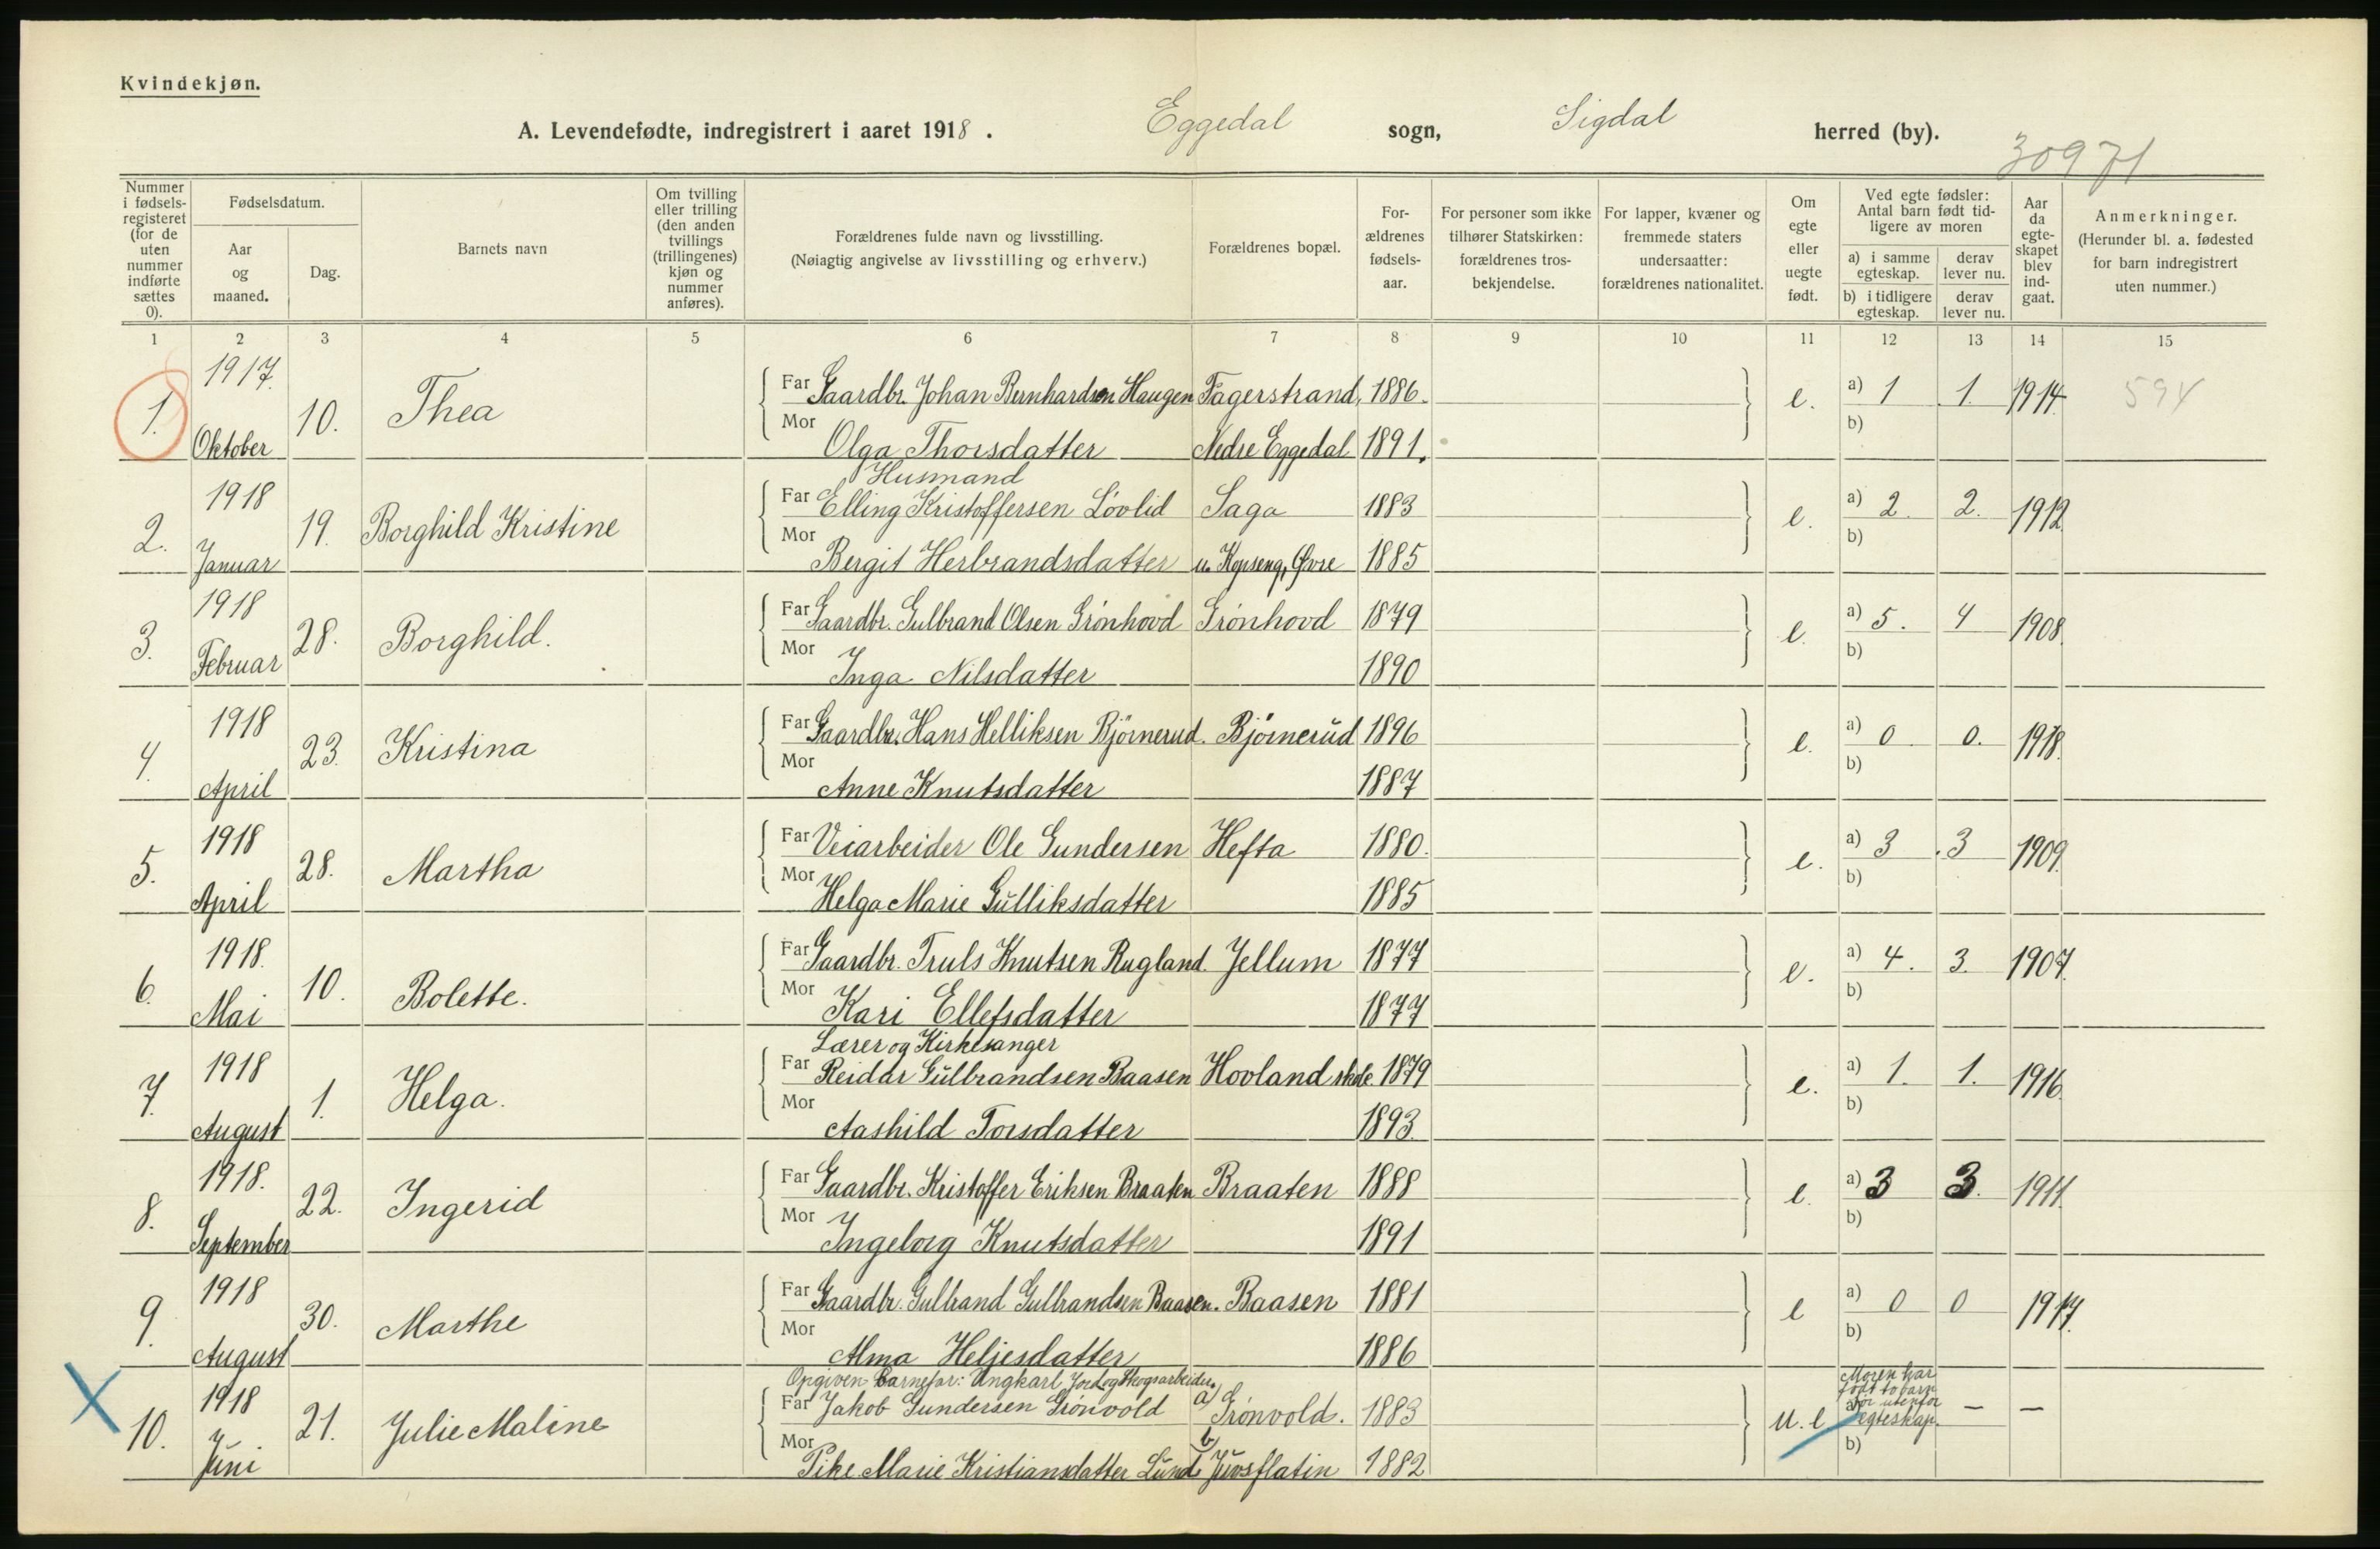 Kvindekjøn.
A. Levendefødte, indregistrert i aaret 1918. Eggedal sogn, Sigdal herred (by).
30971
Nummer i fødsels-registeret (for de uten nummer indførte sættes 0).
Fødselsdatum.
Aar og maaned.
Dag.
Barnets navn
Om tvilling eller trilling (den anden tvillings (trillingenes) kjøn og nummer anføres).
Forældrenes fulde navn og livsstilling.
(Nøiagtig angivelse av livsstilling og erhverv.)
Forældrenes bopæl.
For-ældrenes fødsels-aar.
For personer som ikke tilhører Statskirken: forældrenes tros-bekjendelse.
For lapper, kvæner og fremmede staters undersaatter: forældrenes nationalitet.
Om egte eller uegte født.
Ved egte fødsler: Antal barn født tid-ligere av moren
a) i samme egteskap.
derav lever nu.
b) i tidligere egteskap.
derav lever nu.
Aar da egte-skapet blev ind-gaat.
Anmerkninger.
(Herunder bl. a. fødested for barn indregistrert uten nummer.)
1 2 3 4 5 6 7 8 9 10 11 12 13 14 15
1. 1917. Oktober 10. Thea
Far Gaardbr. Johan Bernhardsen Haugen Fagerstrand, 1886. e. a) 1 1. 1914. 594
Mor Olga Thorsdatter Nedre Eggedal 1891. b)
2. 1918 Januar 19. Borghild Kristine
Husmand
Far Elling Kristoffersen Lövlid Saga 1883 e. a) 2. 2. 1912
Mor Bergit Herbrandsdatter u. Kopseng, Øvre 1885 b)
3. 1918 Februar 28. Borghild.
Far Gaardbr. Gulbrand Olsen Grönhovd Grönhovd 1879 e. a) 5. 4 1908.
Mor Inga Nilsdatter 1890 b)
4. 1918 April 23. Kristina
Far Gaardbr. Hans Helliksen Björnerud. Björnerud 1896 e. a) 0 0. 1918.
Mor Anne Knutsdatter 1887 b)
5. 1918 April 28. Martha
Far Veiarbeider Ole Gundersen Hefta 1880. e. a) 3 3 1909.
Mor Helga Marie Gulliksdatter 1885 b)
6. 1918. Mai 10. Bolette.
Far Gaardbr. Truls Knutsen Rugland. Jellum 1877 e. a) 4. 3. 1907.
Mor Kari Ellefsdatter 1877 b)
7. 1918 August 1. Helga.
Lærer og Kirkesanger
Far Reidar Gulbrandsen Baasen Hovland skole 1879 e. a) 1. 1. 1916.
Mor Aashild Torsdatter 1893. b)
8. 1918. September 22. Ingerid
Far Gaardbr. Kristoffer Eriksen Braaten Braaten 1888 e. a) 3 3. 1911.
Mor Ingeborg Knutsdatter 1891 b)
9. 1918 August 30. Marthe
Far Gaardbr. Gulbrand Gulbrandsen Baasen. Baasen 1881 e a) 0 0
Mor Alma Heljesdatter 1886 b)
10. 1918 Juni 21. Julie Maline
Opgiven barnefar: Ungkarl Jord og Skogsarbeider.
Far Jakob Gundersen Grönvold a) Grönvold. 1883 u. e a) Moren har født to barn før utenfor egteskap. — —
Mor Pike Marie Kristiansdatter Lund b) Juvsflatin 1882 b)